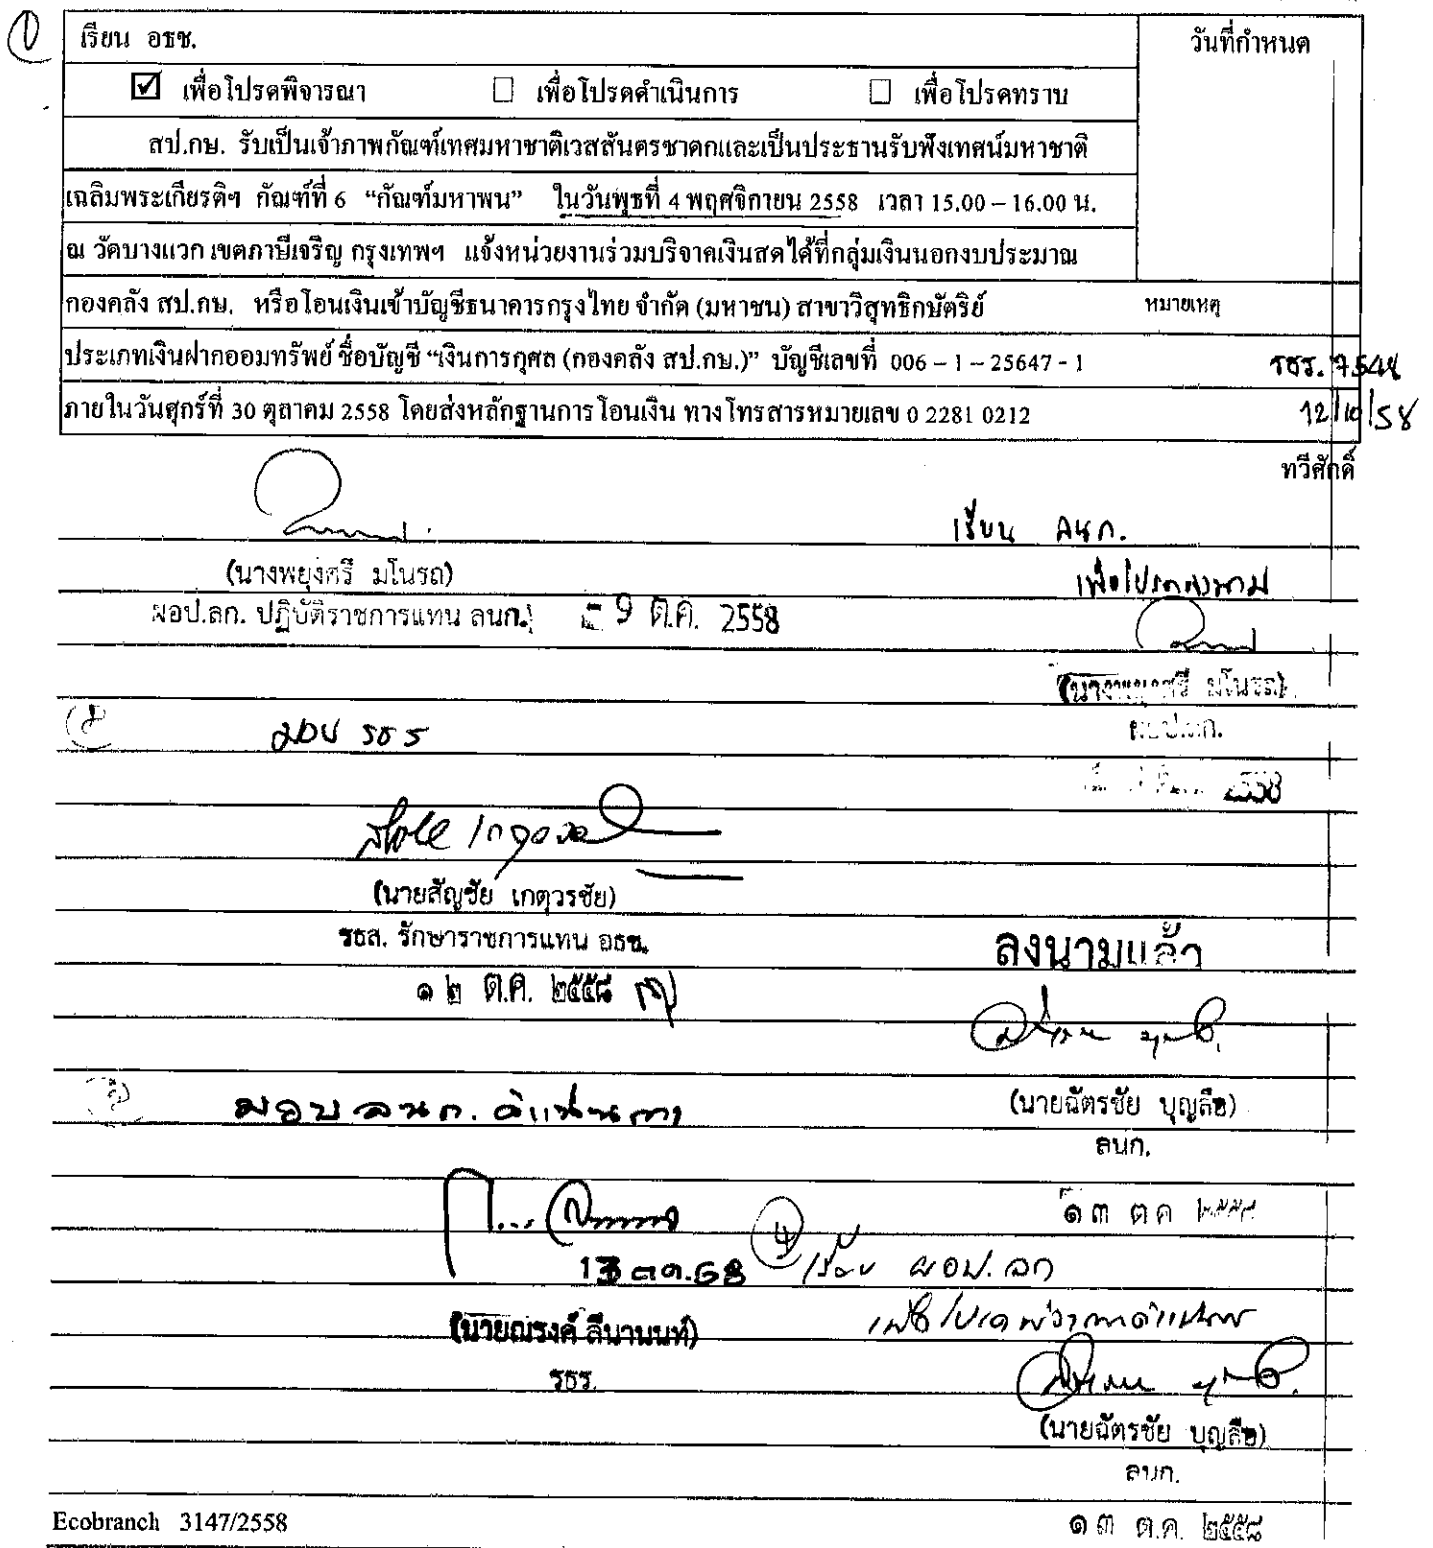 ①
เรียน อธช.
วันที่กำหนด
☑ เพื่อโปรดพิจารณา ☐ เพื่อโปรดดำเนินการ ☐ เพื่อโปรดทราบ
สป.กษ. รับเป็นเจ้าภาพกัณฑ์เทศมหาชาติเวสสันดรชาดกและเป็นประธานรับฟังเทศน์มหาชาติ
เฉลิมพระเกียรติฯ กัณฑ์ที่ 6 “กัณฑ์มหาพน” ในวันพุธที่ 4 พฤศจิกายน 2558 เวลา 15.00 – 16.00 น.
ณ วัดบางแวก เขตภาษีเจริญ กรุงเทพฯ แจ้งหน่วยงานร่วมบริจาคเงินสดได้ที่กลุ่มเงินนอกงบประมาณ
กองคลัง สป.กษ. หรือโอนเงินเข้าบัญชีธนาคารกรุงไทย จำกัด (มหาชน) สาขาวิสุทธิกษัตริย์
หมายเหตุ
ประเภทเงินฝากออมทรัพย์ ชื่อบัญชี “เงินการกุศล (กองคลัง สป.กษ.)” บัญชีเลขที่ 006 – 1 – 25647 - 1
รธร. 7548
ภายในวันศุกร์ที่ 30 ตุลาคม 2558 โดยส่งหลักฐานการโอนเงิน ทางโทรสารหมายเลข 0 2281 0212
12/10/58
ทวีศักดิ์
เรียน ลนก.
(นางพยุงศรี มโนรถ)
เพื่อโปรดลงนาม
ผอป.ลก. ปฏิบัติราชการแทน ลนก.
- 9 ต.ค. 2558
(นางพยุงศรี มโนรถ)
ผอป.ลก.
2558
มอบ รธร
(นายสัญชัย เกตุวรชัย)
รธส. รักษาราชการแทน อธช.
ลงนามแล้ว
๑๒ ต.ค. ๒๕๕๘
(นายฉัตรชัย บุญลือ)
มอบ ลนก. ดำเนินการ
ลนก.
๑๓ ต.ค. ๒๕๕๘
13 ต.ค. 58
④ เรียน ผอป.ลก
(นายณรงค์ ลีนานนท์)
เพื่อโปรดพิจารณาดำเนินการ
รธร.
(นายฉัตรชัย บุญลือ)
ลนก.
Ecobranch 3147/2558
๑๓ ต.ค. ๒๕๕๘